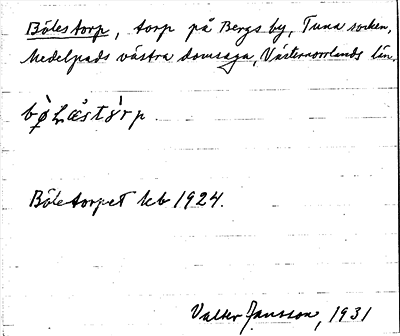 Bölestorp, torp på Bergs by, Tuna socken,
Medelpads västra domsaga, Västernorrlands län.
bø̀Læstỳrp.
Böletorpet kb 1924.
Valter Jansson, 1931